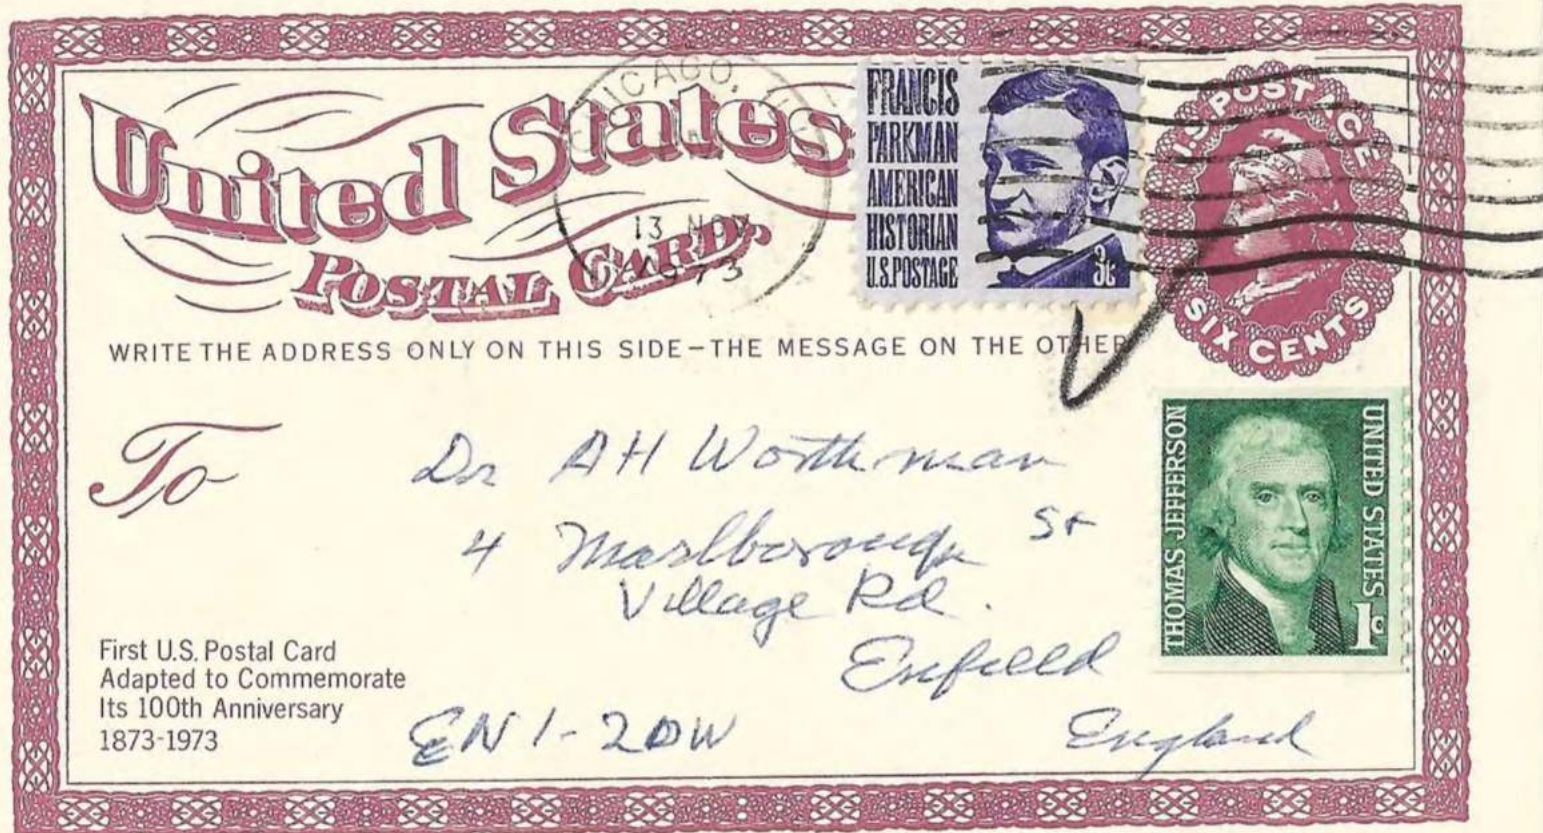 United States
POSTAL CARD.
CHICAGO,
13 NOV
1973
FRANCIS
PARKMAN
AMERICAN
HISTORIAN
U.S.POSTAGE
3¢
U.S. POSTAGE
SIX CENTS
WRITE THE ADDRESS ONLY ON THIS SIDE–THE MESSAGE ON THE OTHER
To
Dr AH Worthman
4 Marlborough St
Village Rd.
Enfield
England
EN1-2DW
THOMAS JEFFERSON
UNITED STATES
1c
First U.S. Postal Card
Adapted to Commemorate
Its 100th Anniversary
1873-1973